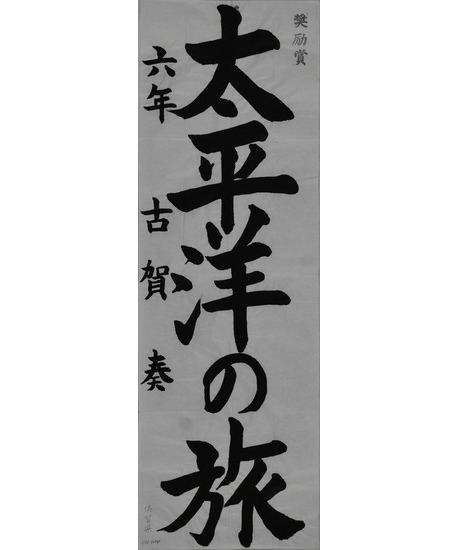 奨励賞
太平洋の旅
六年 古賀奏
佐賀県